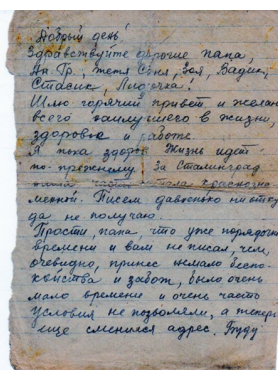 Добрый день!
Здравствуйте дорогие папа,
Ан. Гр., Женя, Соня, Зоя, Вадик,
Стасик, Лидочка!
Шлю горячий привет и желаю
всего наилучшего в жизни,
здоровье и работе.
Я пока здоров. Жизнь идет
по-прежнему. За Сталинград
стала краснозна-
менной. Писем давненько ниотку-
да не получаю.
Прости, папа, что уже порядочно
времени я вам не писал, чем,
очевидно, принес немало беспо-
койства и забот, было очень
мало времени и очень часто
условия не позволяли, а теперь
еще сменился адрес. Буду